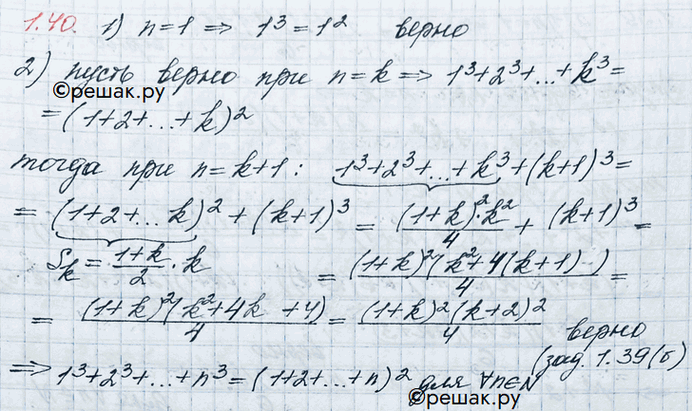 1.40. 1) n=1 ⇒ 1³=1² верно
2) пусть верно при n=k ⇒ 1³+2³+...+k³=
©решак.ру
=(1+2+...+k)²
тогда при n=k+1: 1³+2³+...+k³+(k+1)³=
=(1+2+...k)²+(k+1)³ = (1+k)²·k²/4 + (k+1)³ =
Sₖ = (1+k)/2 · k = (1+k)²(k²+4(k+1))/4 =
= (1+k)²(k²+4k+4)/4 = (1+k)²(k+2)²/4 верно
(зад. 1.39(б)
⇒ 1³+2³+...+n³=(1+2+...+n)² для ∀n∈N
©решак.ру